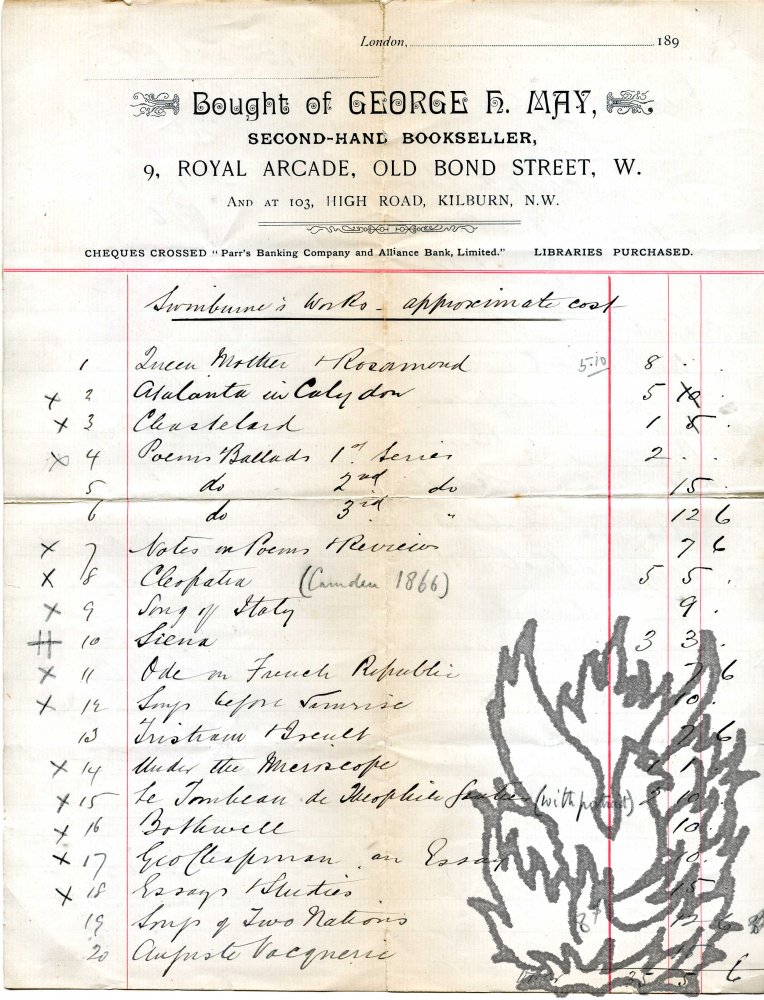 London, 189
Bought of GEORGE H. MAY,
SECOND-HAND BOOKSELLER,
9, ROYAL ARCADE, OLD BOND STREET, W.
AND AT 103, HIGH ROAD, KILBURN, N.W.
CHEQUES CROSSED "Parr's Banking Company and Alliance Bank, Limited." LIBRARIES PURCHASED.
Swinburne's Works - approximate cost
1 Queen Mother & Rosamond 5.10 8 . .
x 2 Atalanta in Calydon 5 10 .
x 3 Chastelard 1 5 .
x 4 Poems & Ballads 1st Series 2 . .
5 do 2nd do 15 .
6 do 3rd " 12 6
x 7 Notes on Poems & Reviews 7 6
x 8 Cleopatra (Camden 1866) 5 5 .
x 9 Song of Italy 9 .
10 Siena 3 3 .
x 11 Ode on French Republic 7 6
x 12 Songs before Sunrise 10 .
13 Tristram & Iseult 7 6
x 14 Under the Microscope 1 1
x 15 Le Tombeau de Theophile Gautier (with portrait) 2 10
x 16 Bothwell 10 .
x 17 Geo Chapman an Essay 10 .
x 18 Essays & Studies 15
19 Songs of Two Nations 12 6
20 Auguste Vacquerie
25 5 6